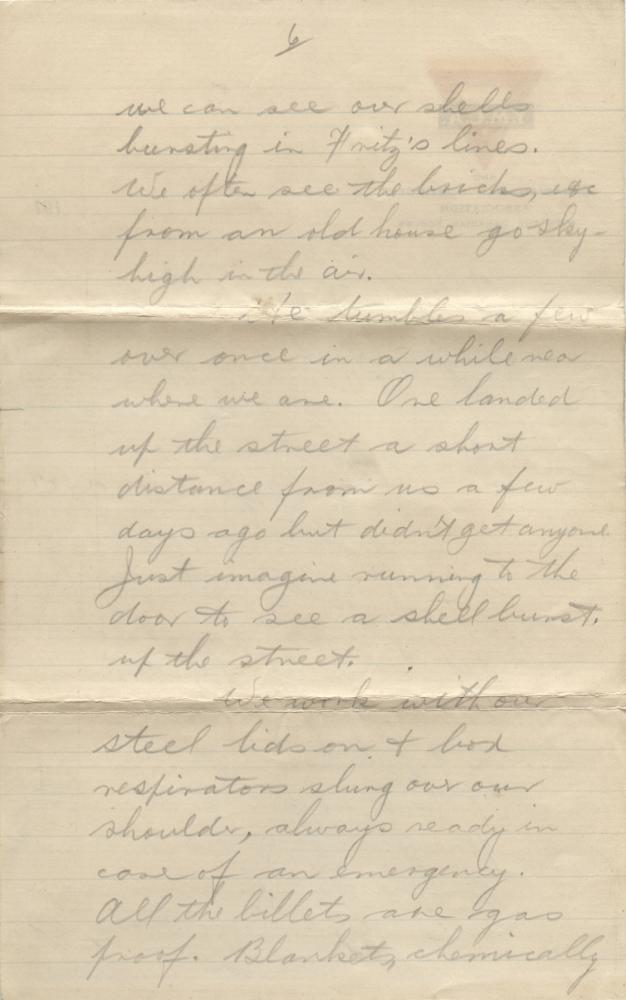 6
we can see our shells
bursting in Fritz's lines.
We often see the bricks, etc
from an old house go sky-
high in the air.
He tumbles a few
over once in a while near
where we are. One landed
up the street a short
distance from us a few
days ago but didn't get anyone.
Just imagine running to the
door to see a shell burst.
up the street.
We work with our
steel lids on & box
respirators slung over our
shoulder, always ready in
case of an emergency.
All the billets are gas
proof. Blankets, chemically